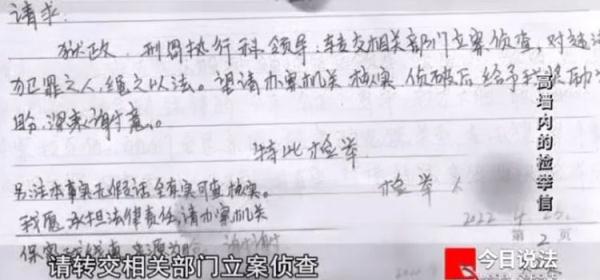 请求
狱政、刑罚执行科领导:转交相关部门立案侦查,对违法
犯罪之人,绳之以法。望请办案机关核实,侦破后给予我奖励为
盼,深表谢意。
特此检举
另注:本事实无假话全真实可查核实。
检举人
我愿承担法律责任,请办案机关
2022
第2页
高墙内的检举信
请转交相关部门立案侦查
今日说法